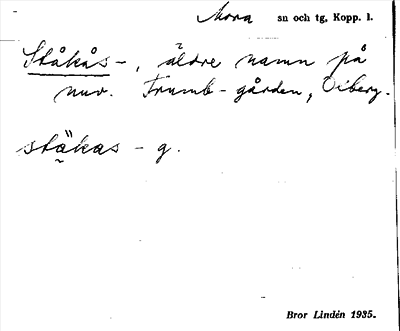 Mora sn och tg, Kopp. l.
Ståkås-, äldre namn på
nuv. Trumb-gården, Oiberg.
stäkas - g.
Bror Lindén 1935.